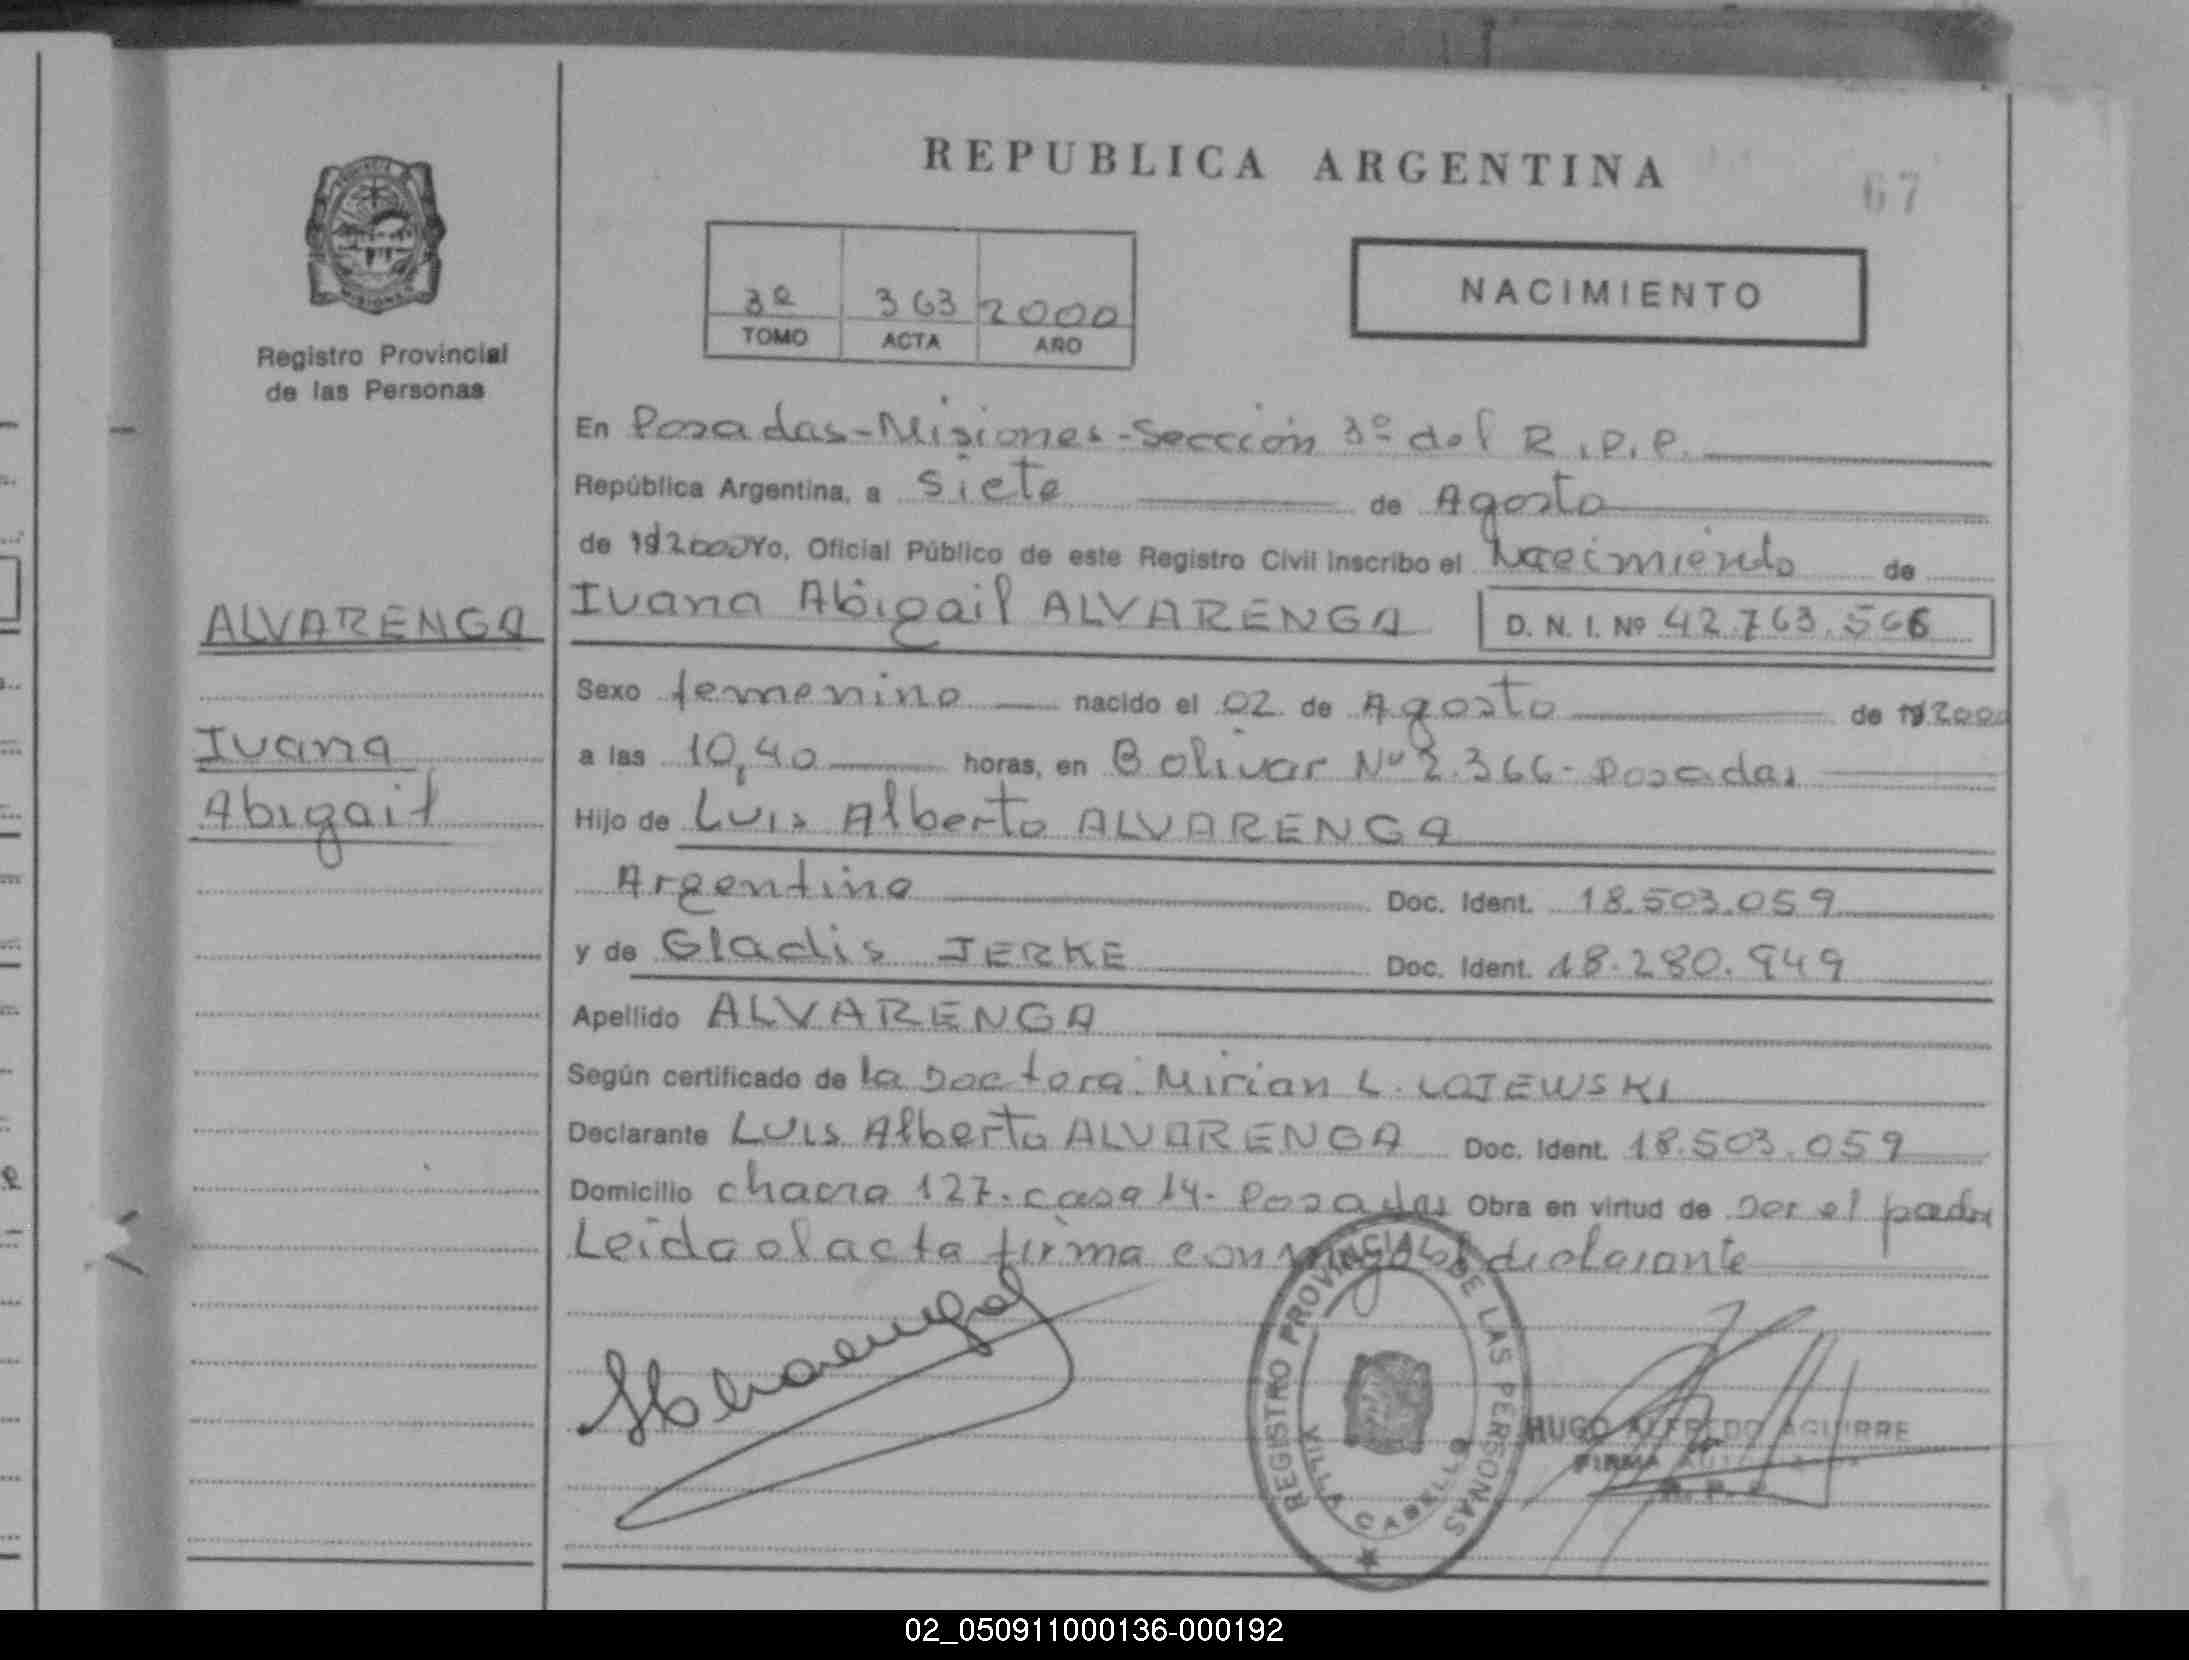 REPUBLICA ARGENTINA
67
3º 363 2000
TOMO ACTA AÑO
NACIMIENTO
Registro Provincial
de las Personas
En Posadas-Misiones-Sección 3º del R.P.P.
República Argentina, a Siete de Agosto
de 192000 Yo, Oficial Público de este Registro Civil inscribo el Nacimiento de
Ivana Abigail ALVARENGA D. N. I. Nº 42.763.566
ALVARENGA
Ivana
Abigail
Sexo femenino nacido el 02 de Agosto de 192000
a las 10,40 horas, en Bolivar Nº 2.366- Posadas
Hijo de Luis Alberto ALVARENGA
Argentino Doc. Ident. 18.503.059
y de Gladis JERKE Doc. Ident. 18.280.949
Apellido ALVARENGA
Según certificado de la Doctora Mirian L. LOJEWSKI
Declarante Luis Alberto ALVARENGA Doc. Ident. 18.503.059
Domicilio chacra 127- casa 14- Posadas Obra en virtud de ser el padre
Leida el acta firma conmigo el declarante
REGISTRO PROVINCIAL DE LAS PERSONAS
VILLA CABELLO
HUGO ALFREDO AGUIRRE
FIRMA AUTORIZADA
02_050911000136-000192